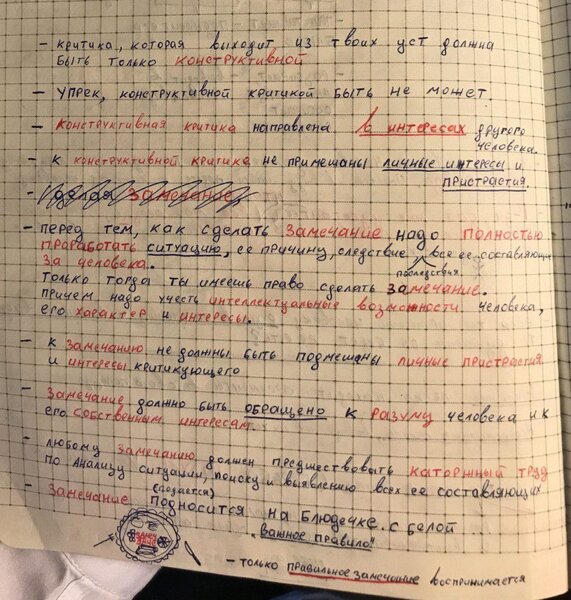 - критика, которая выходит из твоих уст должна
быть только конструктивной
- Упрек, конструктивной критикой быть не может.
- Конструктивная критика направлена в интересах другого
человека.
- К конструктивной критике не примешаны личные интересы и
пристрастия.
- Делая замечание
- перед тем, как сделать замечание надо полностью
проработать ситуацию, ее причину, следствие, все ее составляющие
последствия
за человека.
Только тогда ты имеешь право сделать замечание.
Причем надо учесть интеллектуальные возможности человека,
его характер и интересы.
- К замечанию не должны быть подмешаны личные пристрастия
и интересы критикующего
- Замечание должно быть обращено к разуму человека и к
его собственным интересам.
- Любому замечанию должен предшествовать каторжный труд
по анализу ситуации, поиску и выявлению всех ее составляющих
(подается)
- Замечание подносится на блюдечке с белой
"важное правило"
- только правильное замечание воспринимается